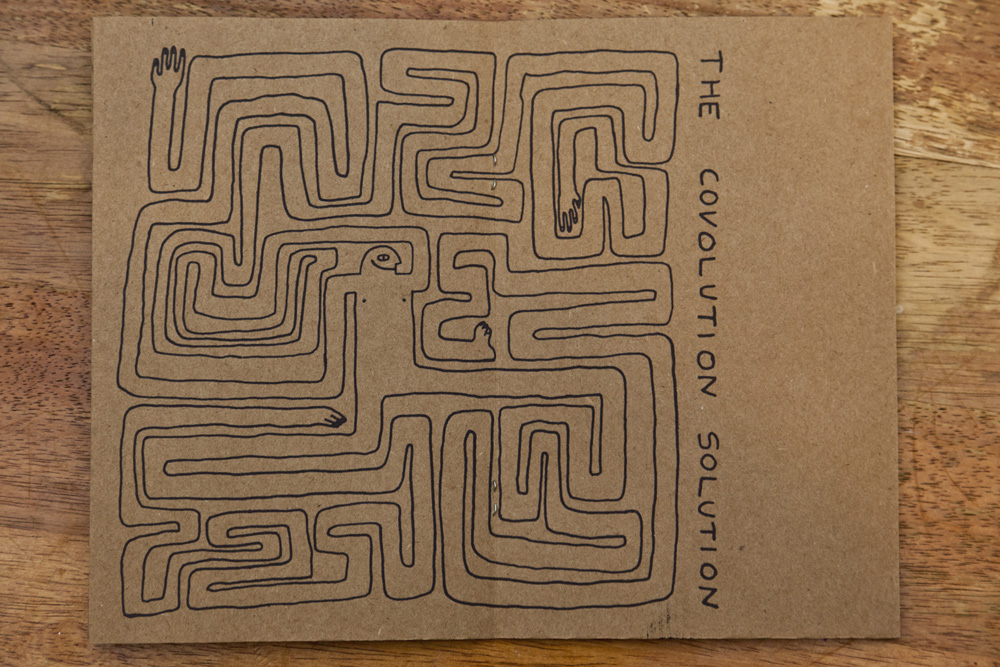 THE COVOLUTION SOLUTION